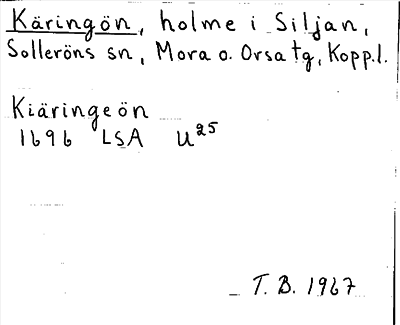 Käringön, holme i Siljan,
Solleröns sn, Mora o. Orsa tg, Kopp.l.
Kiäringeön
1696 LSA U25
T. B. 1967